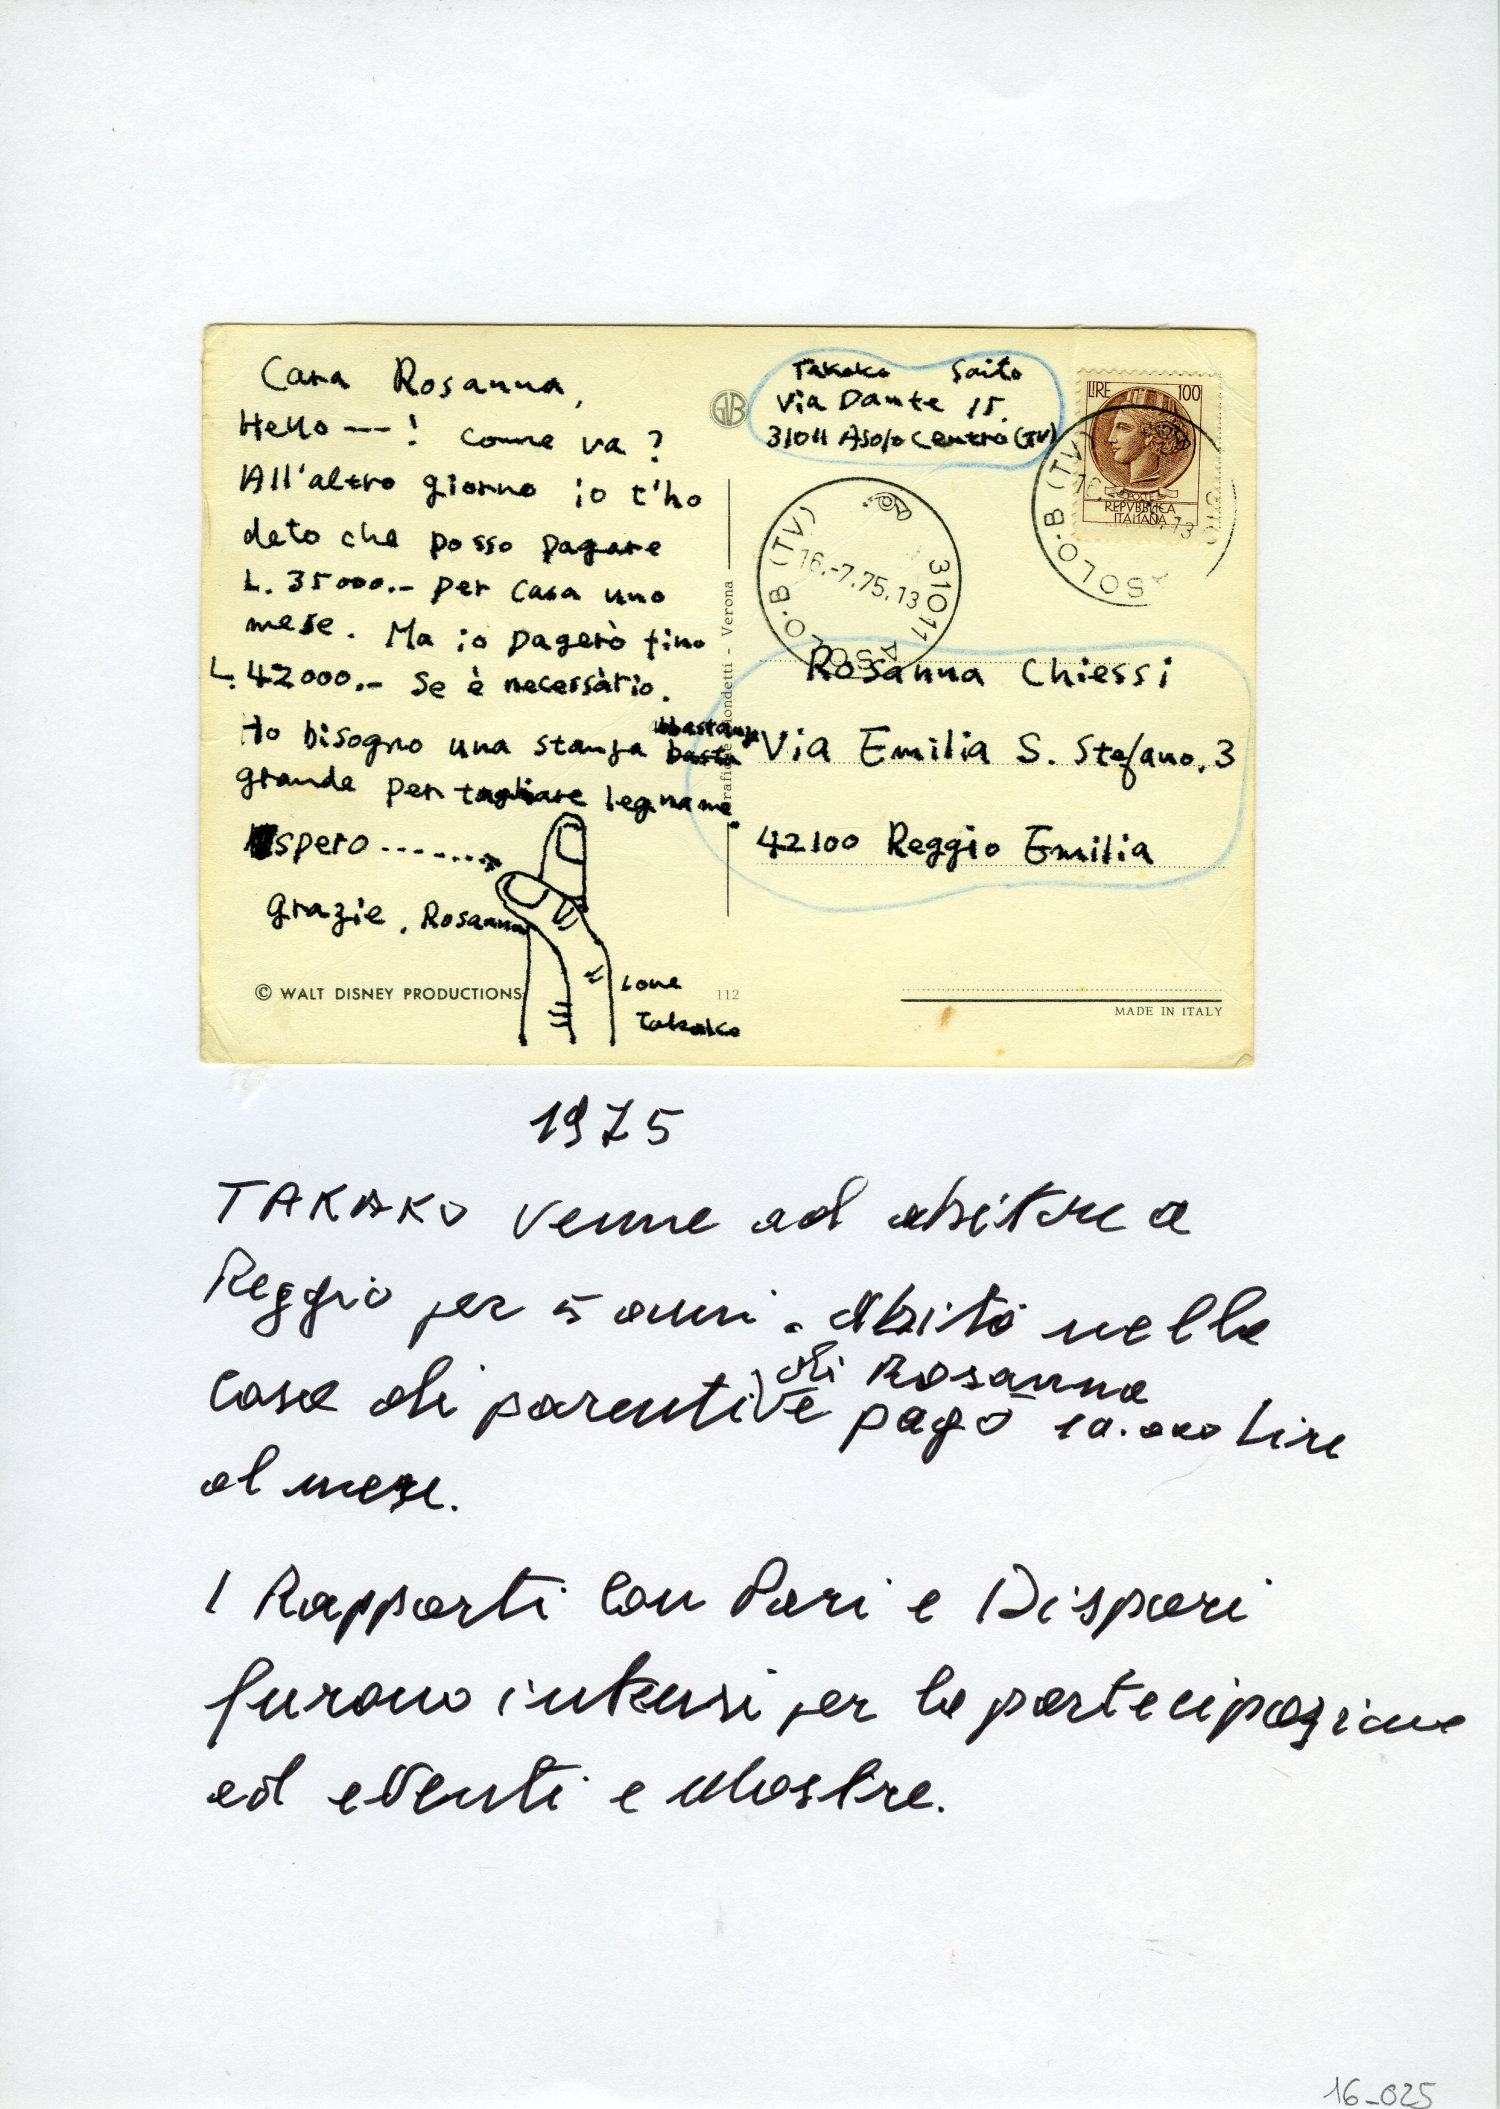 Cara Rosanna,
Hello ---! Come va?
All'altro giorno io t'ho
deto che posso pagare
L. 35000.- per casa uno
mese. Ma io pagerò fino
L. 42000.- Se è necessàrio.
Ho bisogno una stanza abbastanza
basta
grande per tagliare legname.
spero ........
grazie, Rosanna
Love
Takako
© WALT DISNEY PRODUCTIONS
112
Verona
GVB
Takako Saito
Via Dante 15.
31011 Asolo Centro (TV)
LIRE 100
POSTE
REPVBBLICA
ITALIANA
31011 ASOLO.B (TV)
16.-7.75.13
ASOLO.B (TV)
Rosanna Chiessi
Via Emilia S. Stefano, 3
42100 Reggio Emilia
MADE IN ITALY
1975
TAKAKO venne ad abitare a
Reggio per 5 anni. Abitò nella
di Rosanna
casa di parenti e pagò 10.000 Lire
al mese.
I Rapporti con Pari e Dispari
furono intensi per la partecipazione
ed eventi e Mostre.
16_025